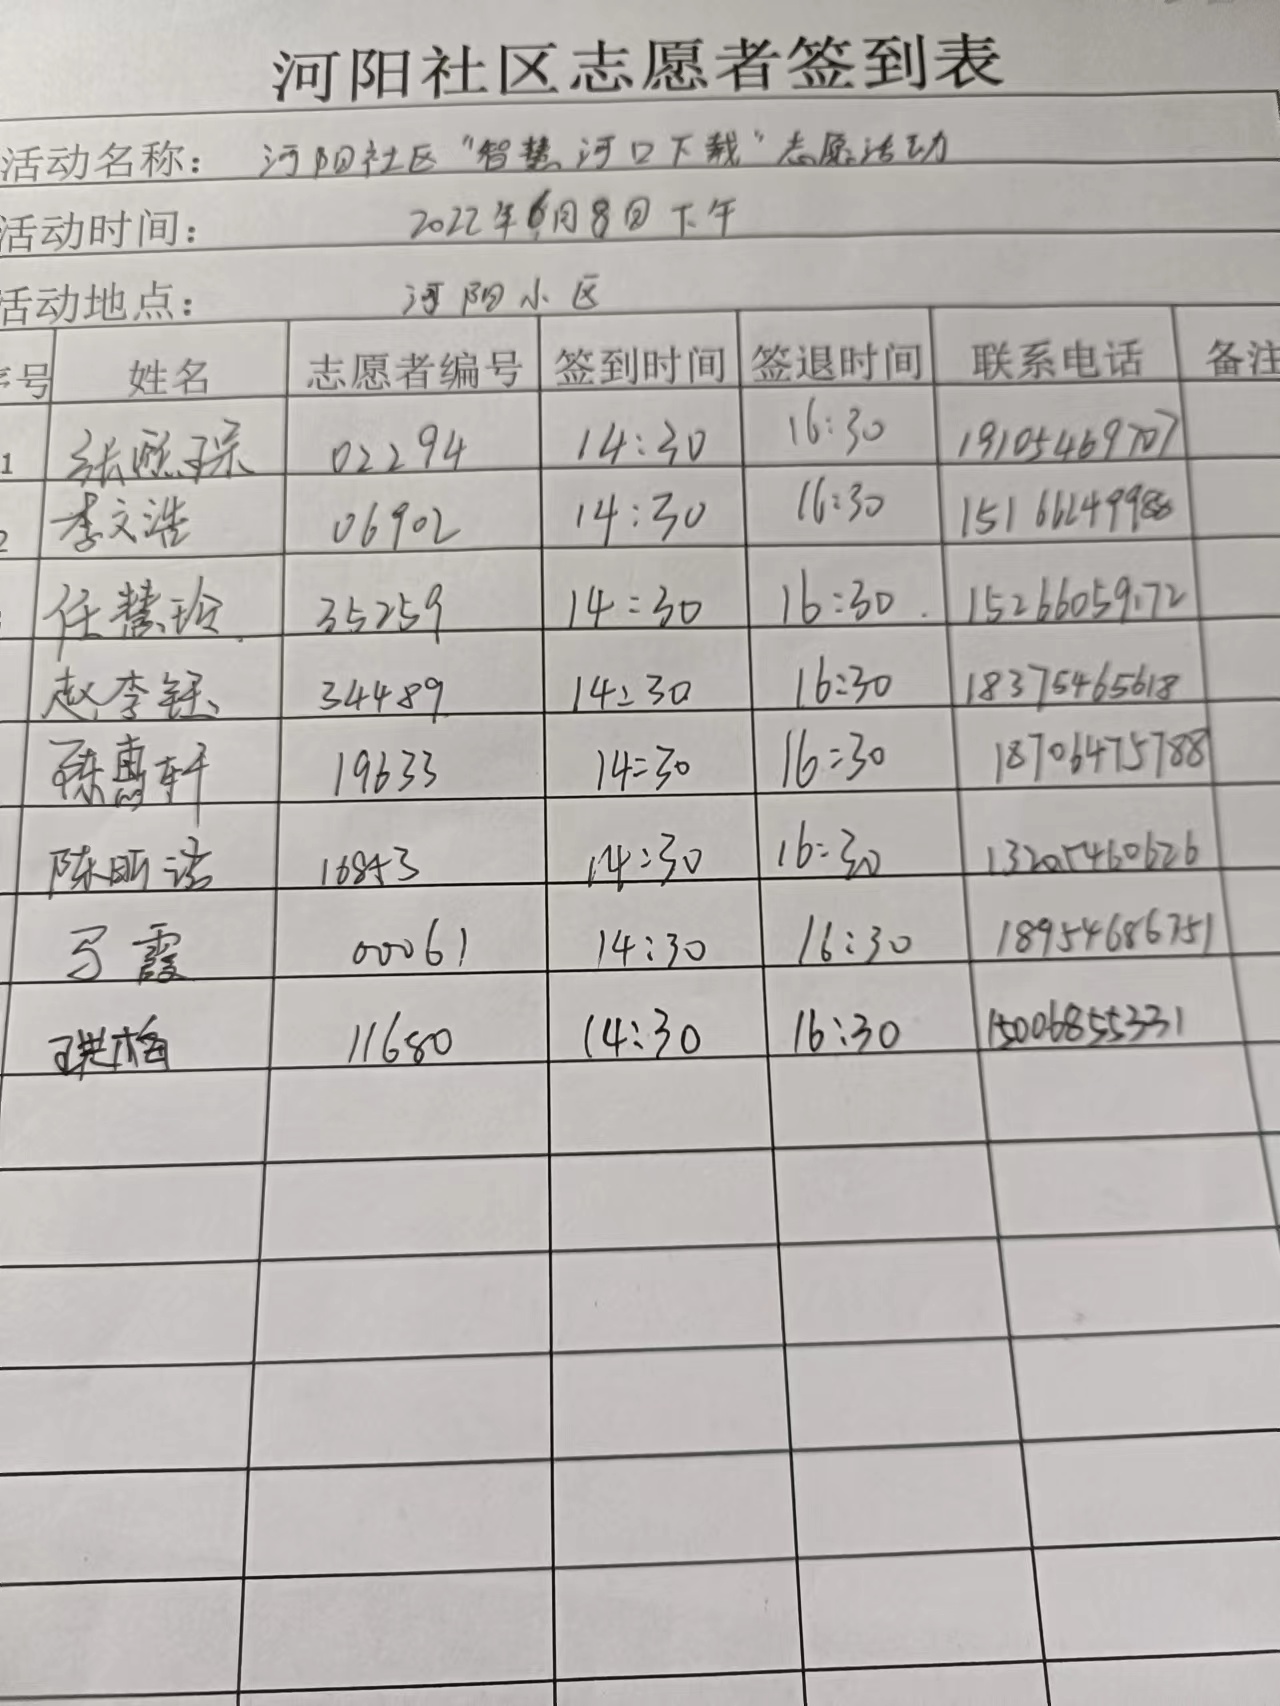 河阳社区志愿者签到表
活动名称： 河阳社区“智慧河口下载”志愿活动
活动时间： 2022年6月8日下午
活动地点： 河阳小区
序号 姓名 志愿者编号 签到时间 签退时间 联系电话 备注
1 张熙琛 02294 14:30 16:30 19105469707
2 李文浩 06902 14:30 16:30 15166249986
任慧玲 35259 14:30 16:30 15266059172
赵李钰 34489 14:30 16:30 18375465618
19633 14:30 16:30 18706475788
陈昕洁 16853 14:30 16:30 13205460626
马霞 00061 14:30 16:30 18954686751
11680 14:30 16:30 15006855331